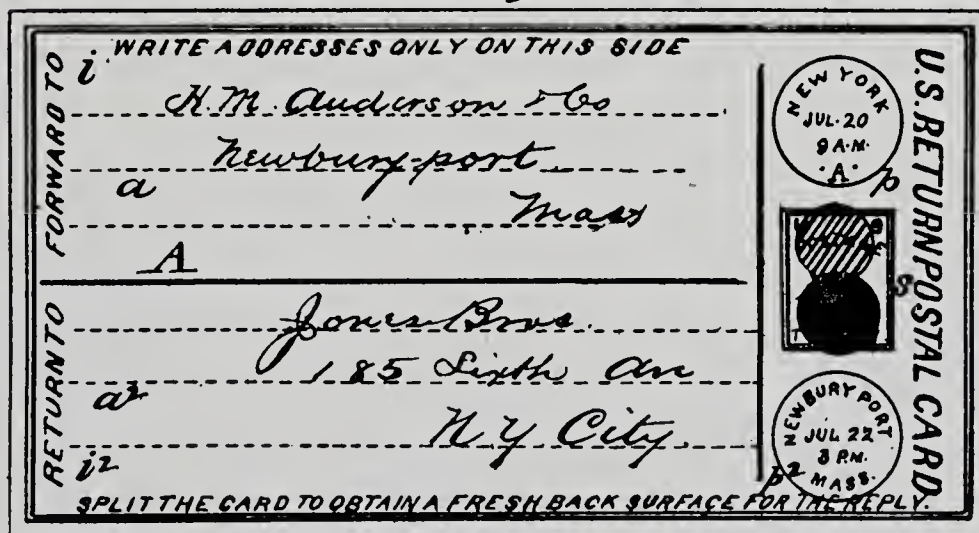 WRITE ADDRESSES ONLY ON THIS SIDE
i
FORWARD TO
H. M. Anderson & Co
Newbury-port
a
Mass
A
RETURN TO
Jones Bros.
185 Sixth Av
a2
N. Y. City.
i2
SPLIT THE CARD TO OBTAIN A FRESH BACK SURFACE FOR THE REPLY.
NEW YORK
JUL·20
9 A·M·
·A·
p
s
NEWBURYPORT
JUL 22
3 P.M.
MASS.
p2
U.S. RETURN POSTAL CARD.